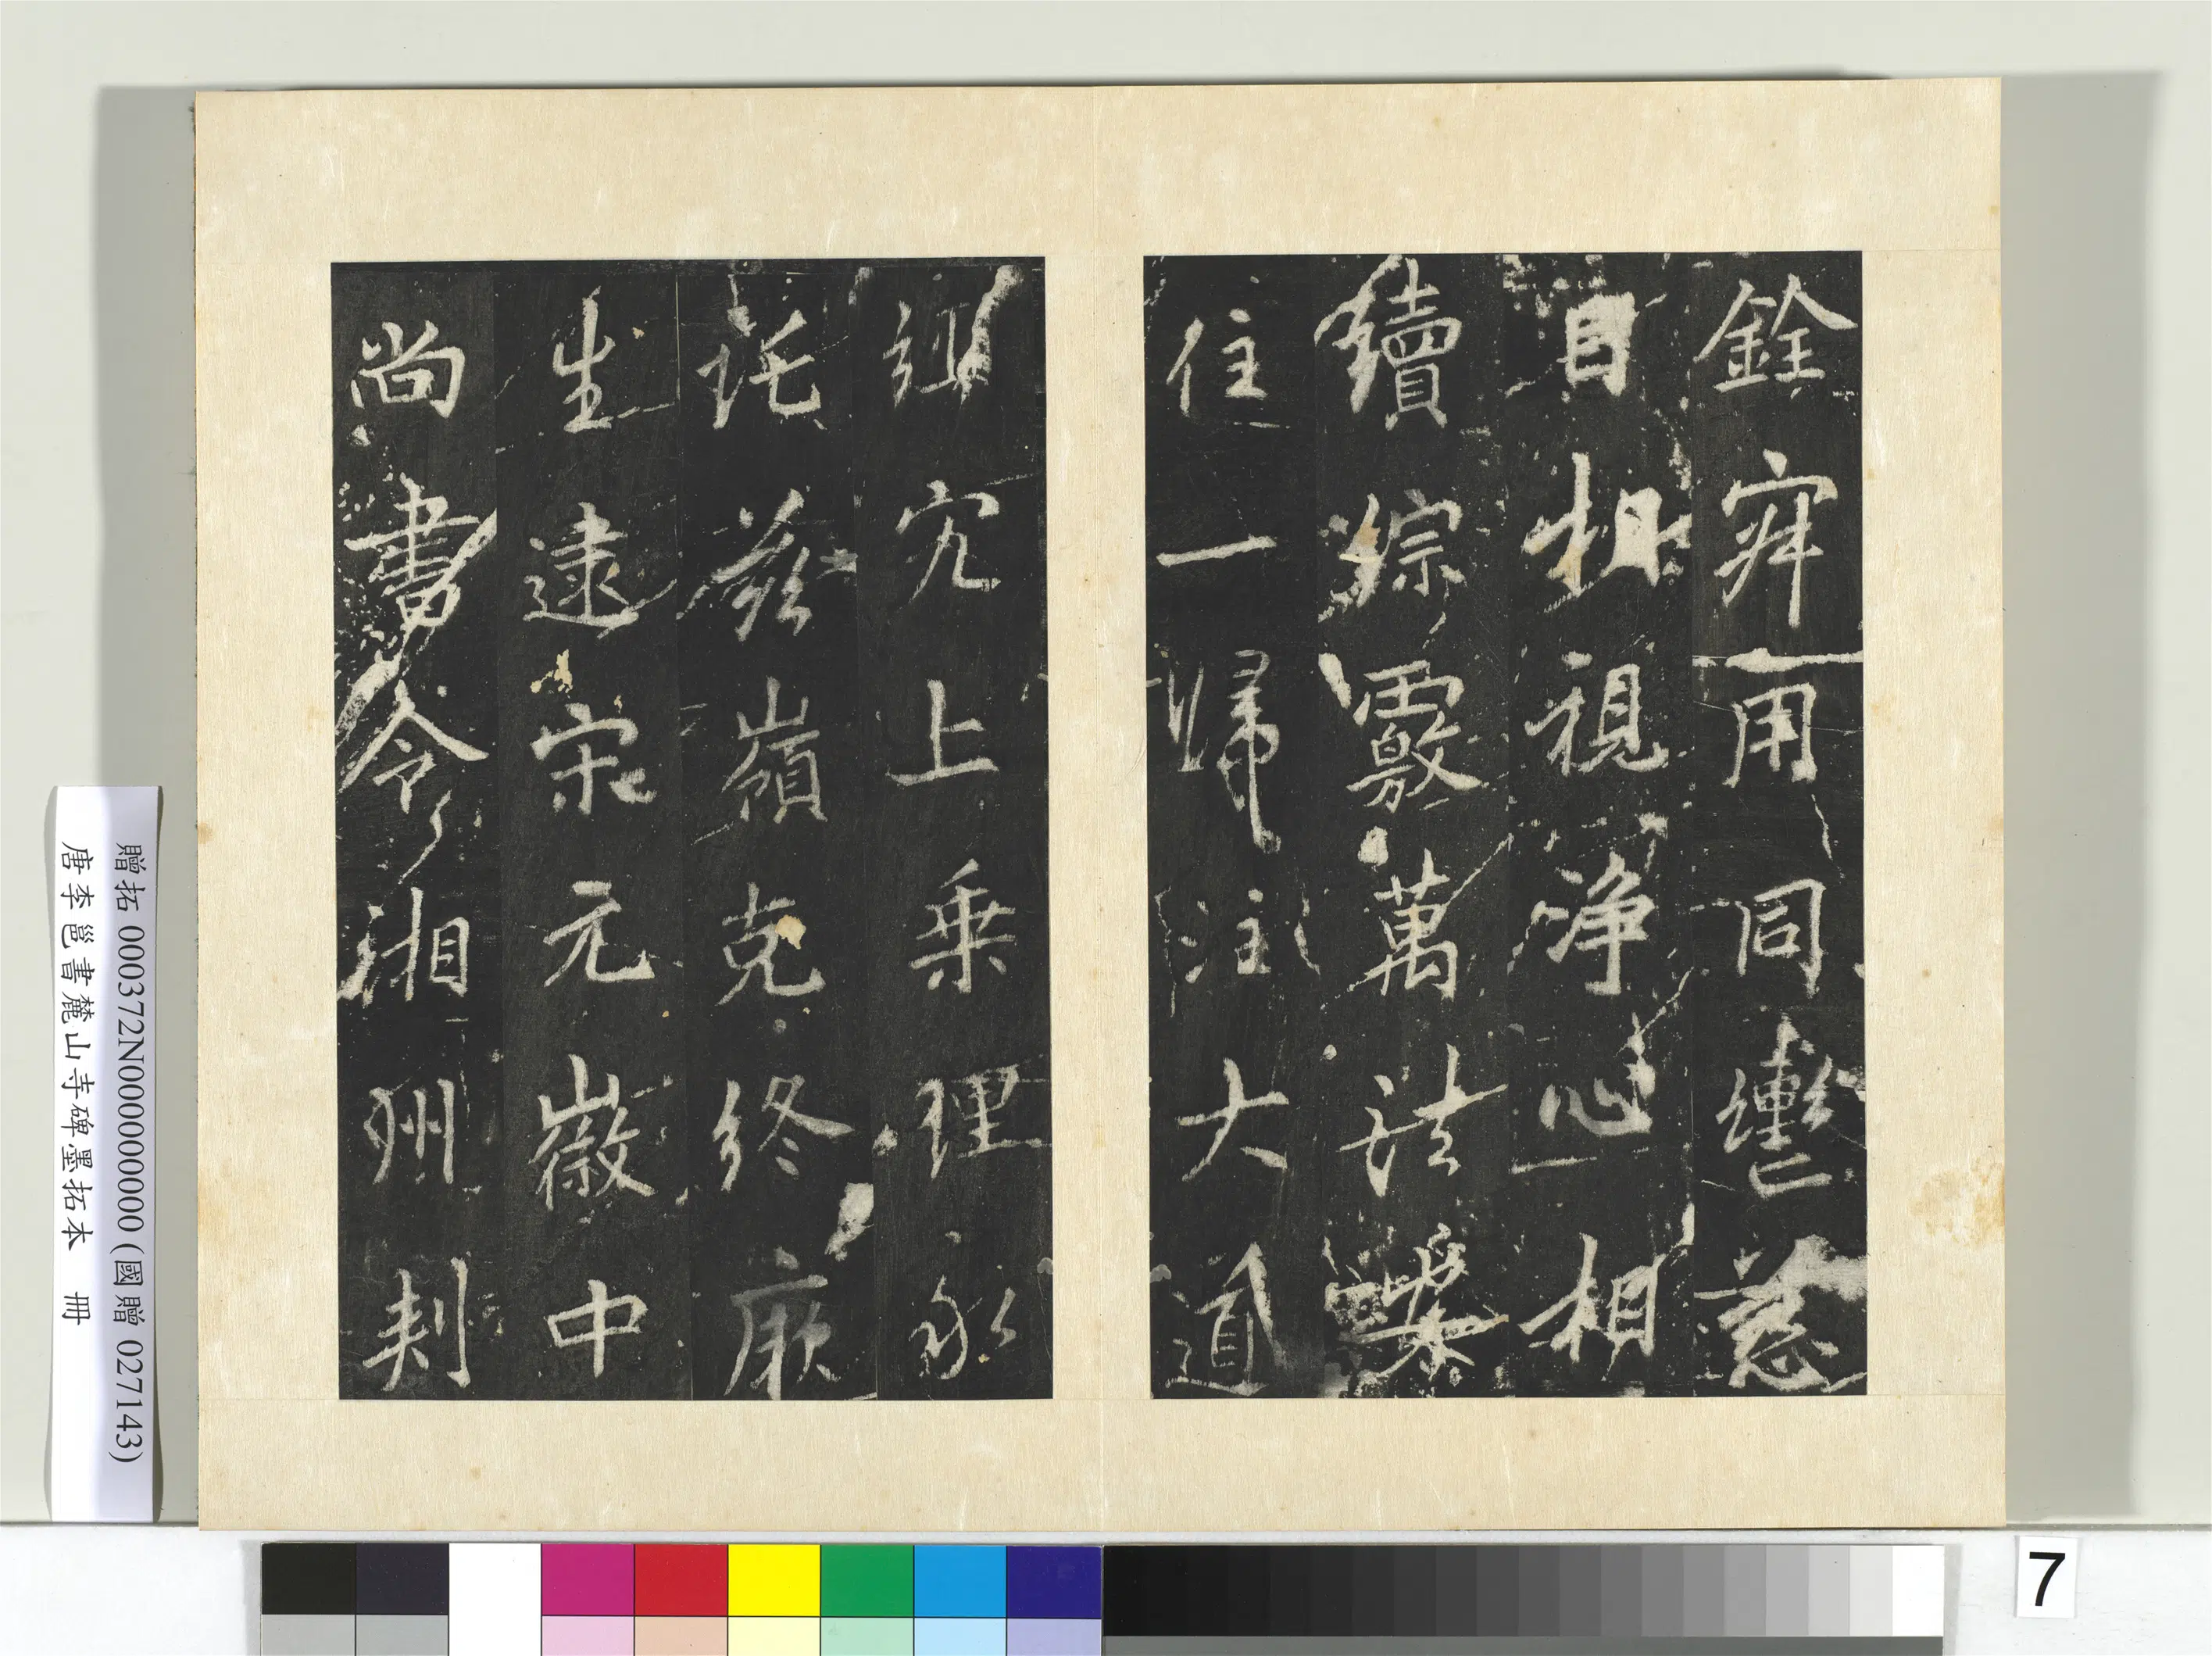 銓宰用同轡慈
目相視淨心相
續綜覈萬法
住一歸注大道
究上乗理永
託茲嶺克終厥
生逮宋元徽中
尚書令湘州刾
贈拓 000372N000000000 (國贈 027143)
唐李邕書麓山寺碑墨拓本 冊
7